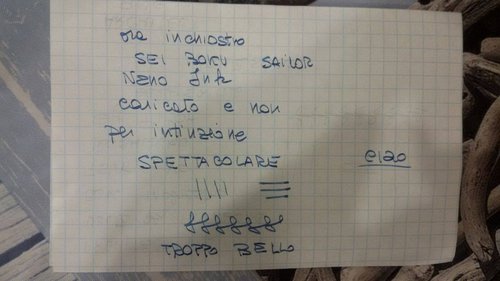 ora inchiostro
SEI BOKU SAILOR
Nano Ink
caricato e non
per intinzione
SPETTACOLARE
ciao
TROPPO BELLO